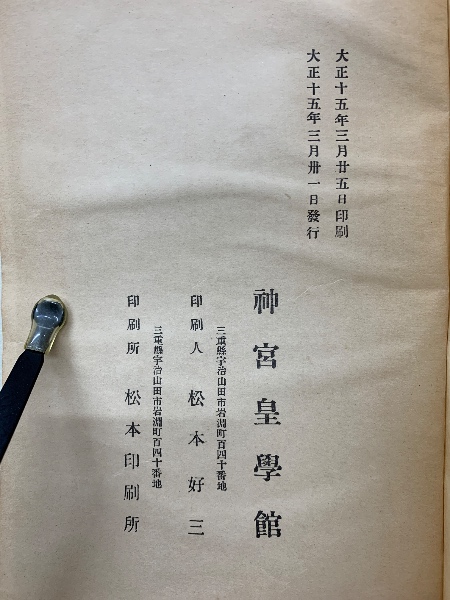 大正十五年三月廿五日印刷
大正十五年三月卅一日發行
神宮皇學館
三重縣宇治山田市岩淵町百四十番地
印刷人 松本好三
三重縣宇治山田市岩淵町百四十番地
印刷所 松本印刷所